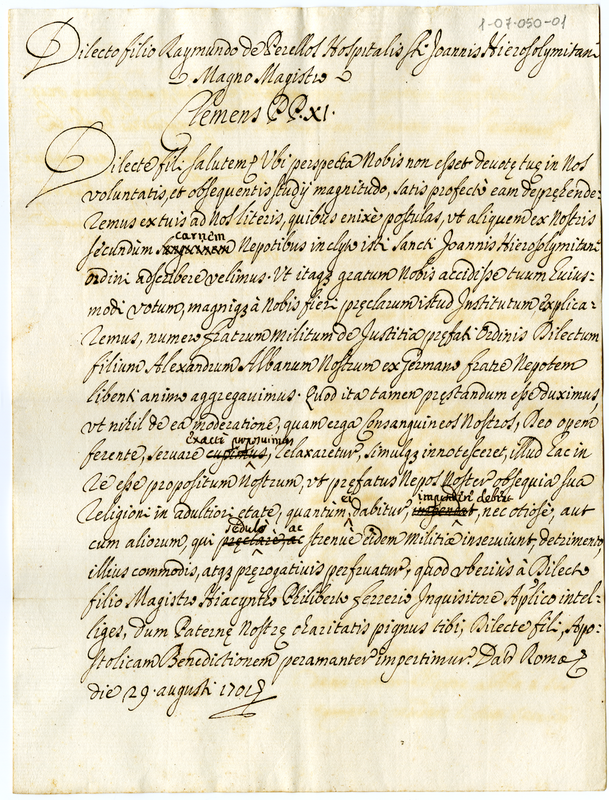 1-07-050-01
Dilecto filio Raymundo de Perellos Hospitalis sti Joannis Hierosolymitani
Magno Magistro
Clemens PP. XI.
Dilecte fili salutem. Ubi perspecta Nobis non esset devotę tuę in Nos
voluntatis, et obsequentis studij magnitudo, satis profectò eam depręhende-
remus ex tuis ad Nos literis, quibus enixè postulas, ut aliquem ex Nostris
carnem
secundum Nepotibus inclyto isti Sancti Joannis Hierosolymitani
ordini adscribere velimus. Ut itaqz gratum Nobis accidisse tuum huius-
modi votum, magniqz à Nobis fieri pręclarum istud Institutum explica-
remus, numero fratrum Militum de Justitia pręfati Ordinis Dilectum
filium Alexandrum Albanum Nostrum ex Germano fratre Nepotem
libenti animo aggregavimus. Quod ita tamen pręstandum esse duximus,
ut nihil de ea moderatione, quam erga Consanguineos Nostros, Deo opem
exactè
ferente, servare cupimus, relaxaretur, simulqz innotesceret, illud hac in
re esse propositum Nostrum, ut pręfatus Nepos Noster obsequia sua
ei impendere debeat
Religioni in adultiori etate, quantum dabitur, impendat, nec otiosè, aut
sedulo ac
cum aliorum, qui pręclarè, ac strenuè eidem Militiæ inserviunt, detrimento,
illius commodis, atqz pręrogativis perfruatur, quod uberiùs à Dilecto
filio Magistro Hiacyntho Philiberto Ferrerio Inquisitore Aplico intel-
liges, dum Paternę Nostrę charitatis pignus tibi, Dilecte fili, Apo-
stolicam Benedictionem peramanter impertimur. Dat. Romæ
die 29. augusti 1701